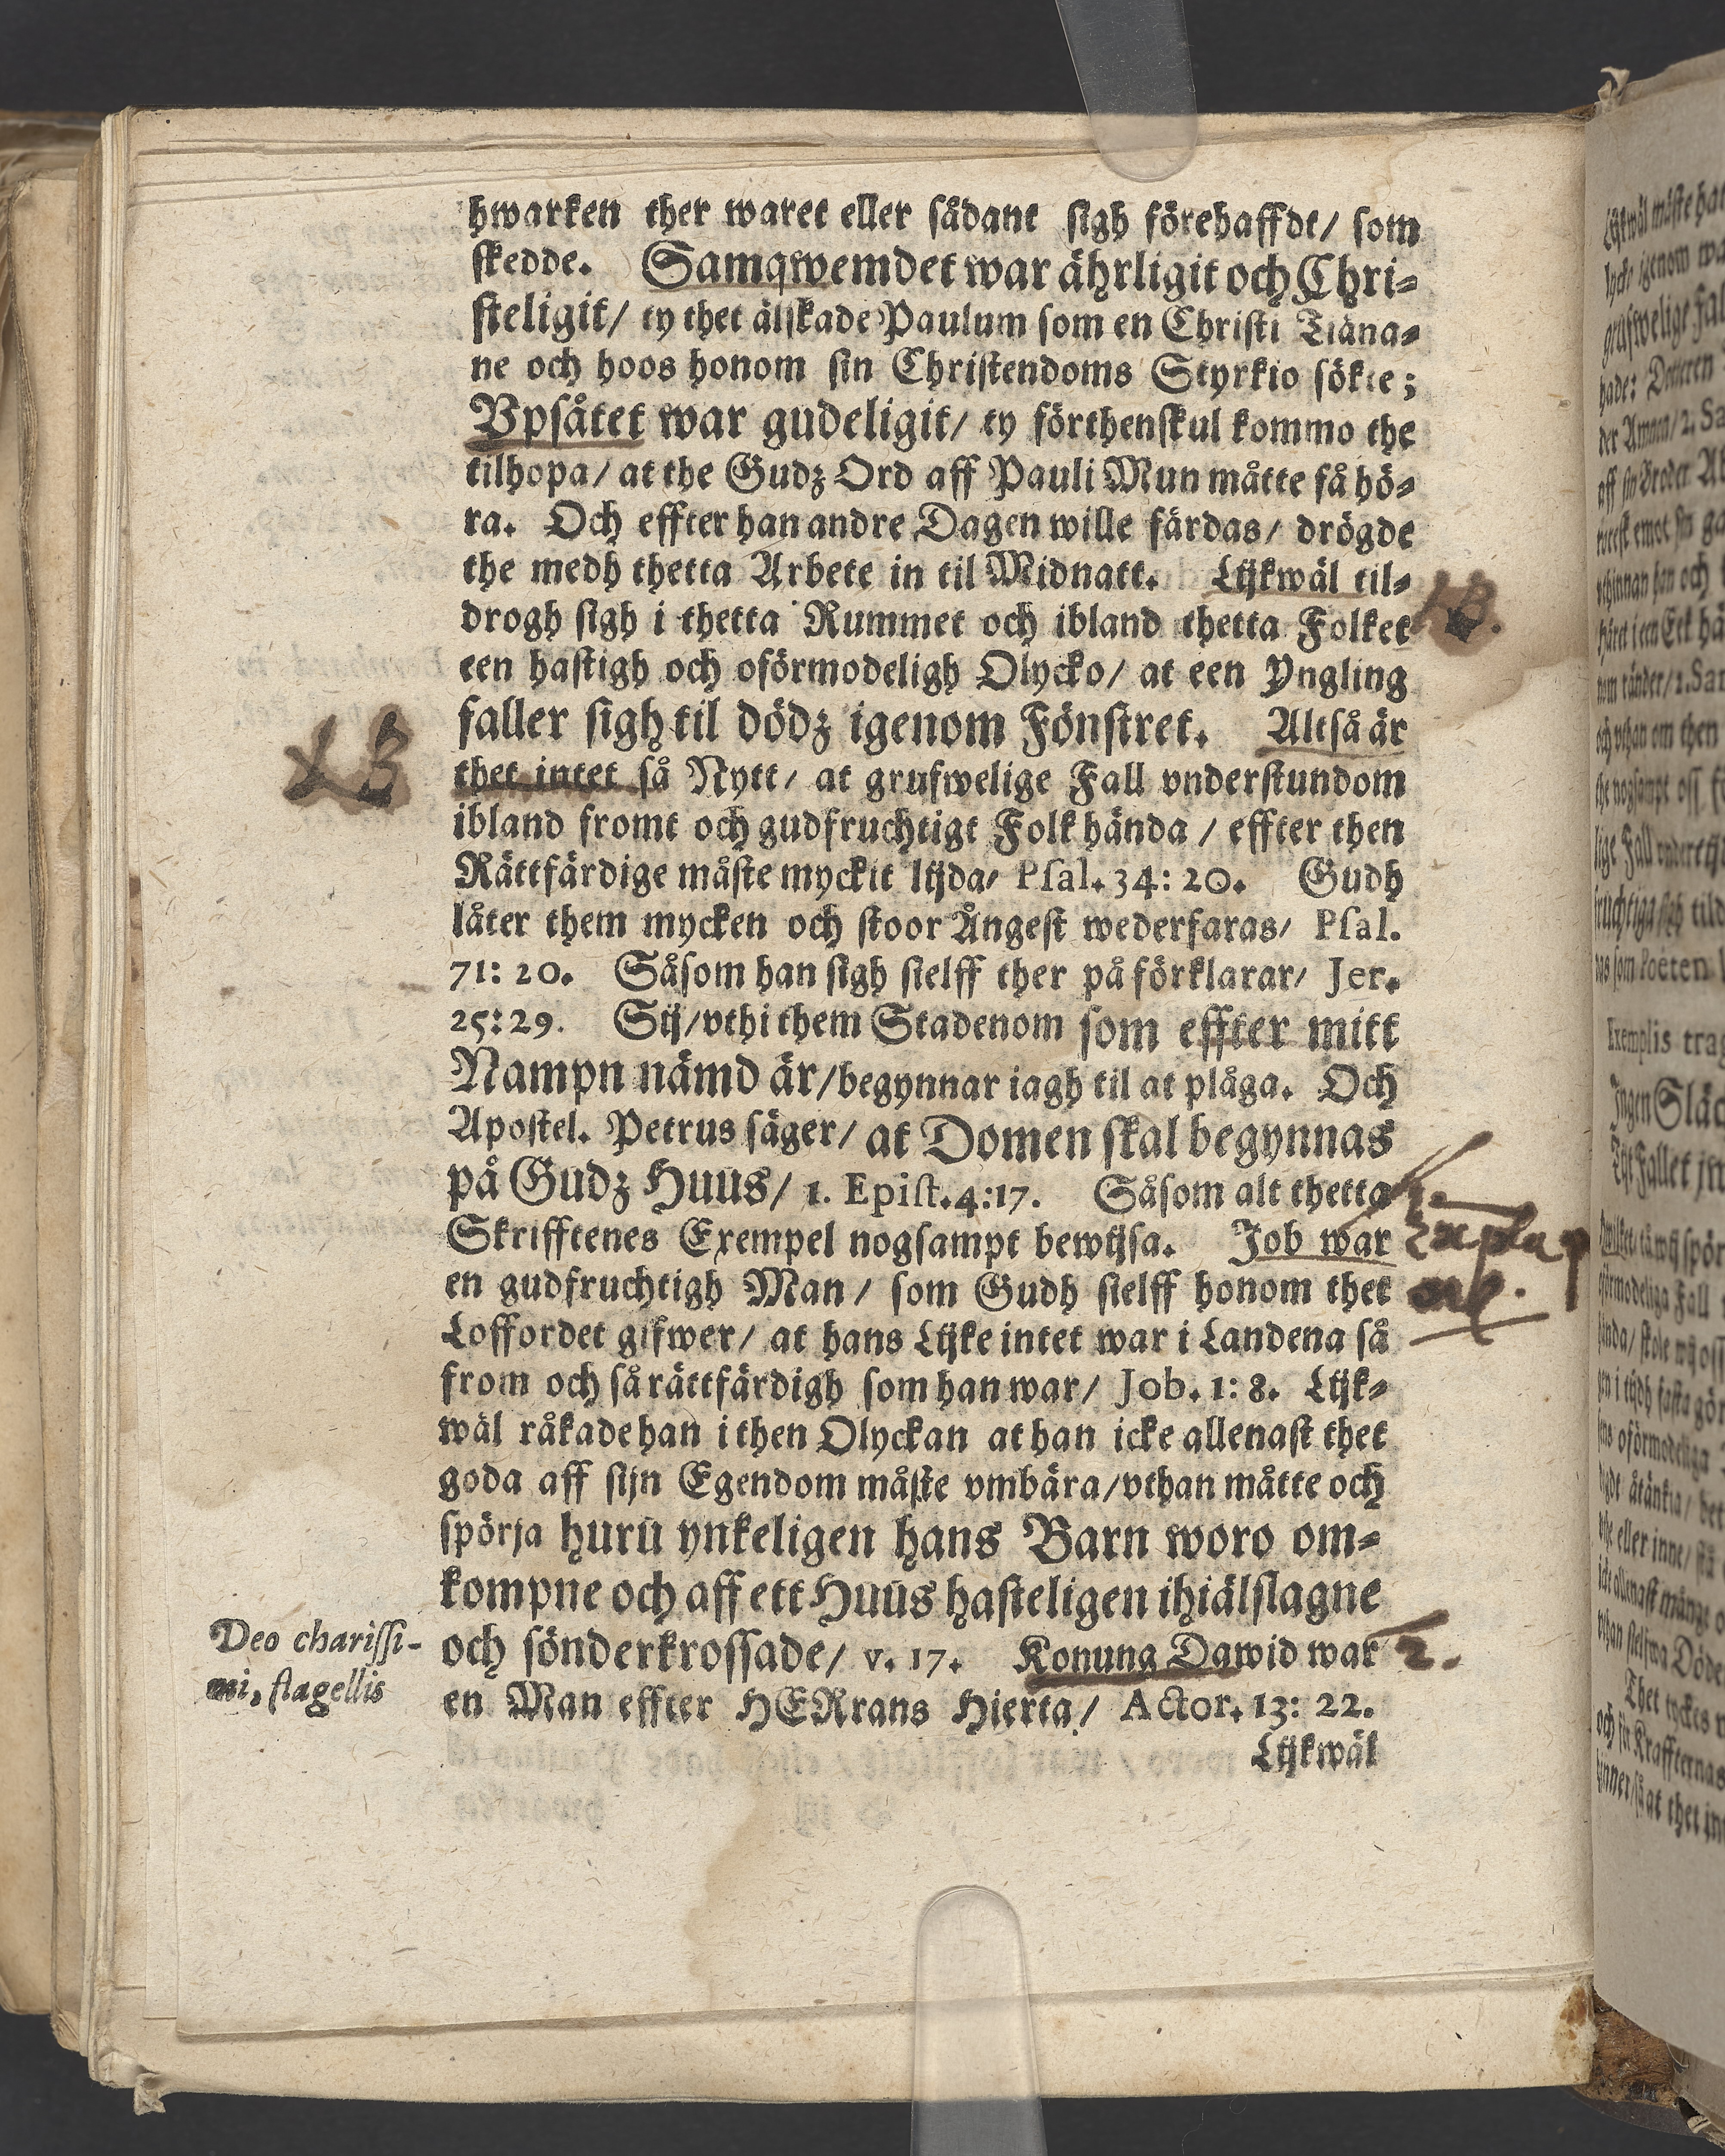 hwarken ther waret eller sådant sigh förehaffdt/ som
skedde. Samqwemdet war ährligit och Chri-
steligit/ ty thet älskade Paulum som en Christi Tiäna-
ne och hoos honom sin Christendoms Styrkio sökte;
Vpsåtet war gudeligit/ ty förthenskul kommo the
tilhopa/ at the Gudz Ord aff Pauli Mun måtte få hö-
ra. Och effter han andre Dagen wille färdas/ drögde
the medh thetta Arbete in til Midnatt. Lijkwäl til-
drogh sigh i thetta Rummet och ibland thetta Folket
een hastigh och oförmodeligh Olycko/ at een Yngling
faller sigh til dödz igenom Fönstret. Altså är
thet intet så Nytt/ at grufwelige Fall vnderstundom
ibland fromt och gudfruchtigt Folk hända/ effter then
Rättfärdige måste myckit lijda/ Psal. 34: 20. Gudh
låter them mycken och stoor Ångest wederfaras/ Psal.
71: 20. Såsom han sigh sielff ther på förklarar/ Jer.
25: 29. Sij/ vthi them Stadenom som effter mitt
Nampn nämd är/ begynnar iagh til at plåga. Och
Apostel. Petrus säger/ at Domen skal begynnas
på Gudz Huus/ 1. Epist. 4:17. Såsom alt thetta
Skrifftenes Exempel nogsampt bewijsa. Job war
en gudfruchtigh Man/ som Gudh sielff honom thet
Loffordet gifwer/ at hans Lijke intet war i Landena så
from och så rättfärdigh som han war/ Job. 1: 8. Lijk-
wäl råkade han i then Olyckan at han icke allenast thet
goda aff sijn Egendom måste vmbära/ vthan måtte och
spörja huru ynkeligen hans Barn woro om-
kompne och aff ett Huus hasteligen ihiälslagne
och sönderkrossade/ v. 17. Konung Dawid war
en Man effter HERrans Hierta/ Actor. 13: 22.
Lijkwäl
Deo charissi-
mi, flagellis
NB
NB.
1.
2.